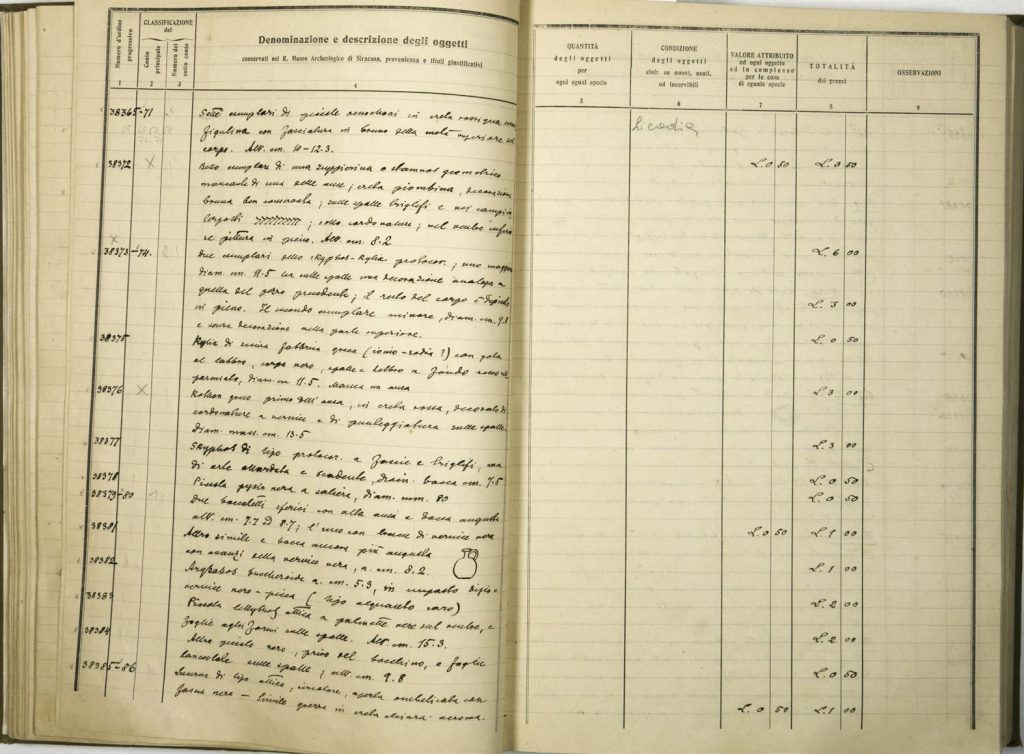 Numero d'ordine progressivo
CLASSIFICAZIONE del
Conto principale
Numero del sotto conto
Denominazione e descrizione degli oggetti
conservati nel R. Museo Archeologico di Siracusa, provenienza e titoli giustificativi
1 2 3 4
38365-71 Sette esemplari di piccole oenochoai in creta rossigna
figulina con fasciatura in bruno della metà superiore del
corpo. Alt. cm. 10-12.3.
38372 X Bello esemplare di una zuppierina o stamnos geometrico
mancante di una delle anse; creta piombina, decorazione
bruna ben conservata; sulle spalle triglifi e nei campi
; sotto cordonature; nel ventre inferio
re pittura in pieno. Alt. cm. 8.2
X
38373-74. Due esemplari dello skyphos-kylix protocor.; uno maggiore
diam. cm. 11.5 ha sulle spalle una decorazione analoga a
quella del pezzo precedente; il resto del corpo è dipinto
in pieno. Il secondo esemplare minore, diam. cm. 9.8
e senza decorazione nella parte superiore.
38375 Kylix di fabbrica greca (ionio-rodia?) con gola
al labbro, corpo nero, spalle e labbro a fondo rosso ris
parmiato, diam. cm. 11.5. Manca un ansa
38376 X Kothon greco privo dell'ansa, in creta rossa, decorato di
cordonature a vernice e di punteggiatura sulle spalle
diam. mass. cm. 13.5
38377 Skyphos di tipo protocor. a fascie e triglifi, ma
di arte ritardata e scadente, diam. bocca cm. 7.5
38378 Piccola pyxis nera a saliera, diam. mm. 80
38379-80 Due boccaletti sferici con alta ansa e bocca angusta
alt. cm. 7.7 ed 8.7; l'uno con tracce di vernice nera
38381 Altro simile e bocca ancora più angusta
con avanzi della vernice nera, a. cm. 8.2.
38382 Aryballos buccheroide a. cm. 5.3, in impasto bigio e
vernice nero-picea (tipo alquanto raro)
38383 Piccola lekythos attica a palmette nere sul ventre, e
foglie agli formi sulle spalle. Alt. cm. 15.3.
38384 Altra piccola nera, priva del bocchino, a foglie
lanceolate sulle spalle; alt. cm. 9.8
38385-86 Lucerna di tipo attico, circolare, aperta ombelicata con
fascia nera - Simile grezza in creta chiara
QUANTITÀ degli oggetti per ogni ugual specie
CONDIZIONE degli oggetti cioè: se nuovi, usati, od inservibili
VALORE ATTRIBUITO ad ogni oggetto od in complesso per le cose di eguale specie
TOTALITÀ dei prezzi
OSSERVAZIONI
5 6 7 8 9
Licodia
L. 0 50 L. 3 50
L. 6 00
L. 3 00
L. 0 50
L. 3 00
L. 3 00
L. 0 50
L. 0 50
L. 0 50 L. 1 00
L. 1 00
L. 2 00
L. 2 00
L. 0 50
L. 0 50 L. 1 00